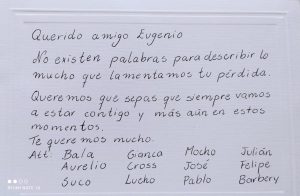 Querido amigo Eugenio
No existen palabras para describir lo
mucho que lamentamos tu pérdida.
Queremos que sepas que siempre vamos
a estar contigo y más aún en estos
momentos.
Te queremos mucho.
Att: Bala Gianca Mocho Julián
Aurelio Cross José Felipe
Suco Lucho Pablo Barbery